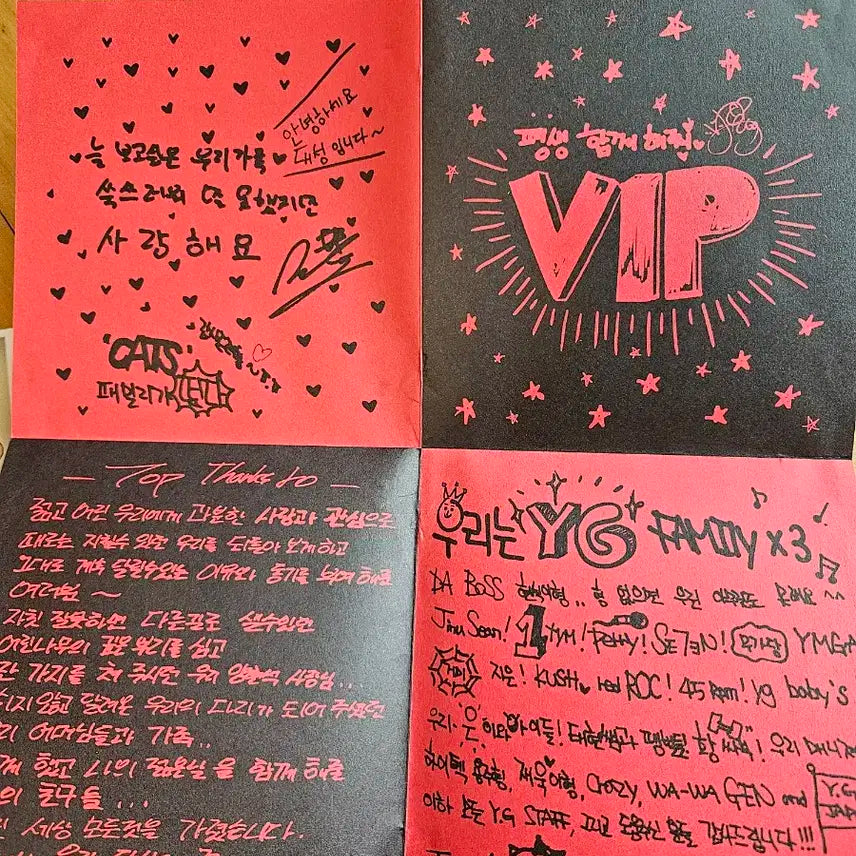 안녕하세요
대성입니다~
늘 보고싶은 우리가족
쑥쓰러워 말 못했지만
사랑해요
'CATS'
패밀리가 떴다
평생 함께 해줘
VIP
— TOP Thanks to —
젊고 어린 우리에게 과분한 사랑과 관심으로
때로는 지칠수 있던 우리를 되돌아 보게하고
그대로 계속 달릴수있는 이유와 동기를 부여해준
여러분 ~
자칫 잘못하면 다른곳으로 샐수있던
어린나무의
가지를 쳐 주시던 우리 양현석 사장님..
않고 달려온 우리의 다리가 되어 주셨던
어머님들과 가족..
했고 나의 젊은날을 함께 해준
의 친구들 ...
세상 모든것을 가졌습니다.
우리는 YG FAMILY x3
DA BOSS 현석이형.. 형 없으면 우린 아무것도 못해요 ^^
Jinu Sean! 1TYM! Perry! SE7EN! 거미 YMGA
지은! KUSH ROC! 45 RPM! yg baby's
우리 이라 아이들! 태현 팽 황싸부! 우리 매니저
하이텍 용형, 재욱이형, CHOZY, WA-WA GEN
이하 모든 Y.G STAFF, 그리고 도움주신 분들 감사드립니다!!!